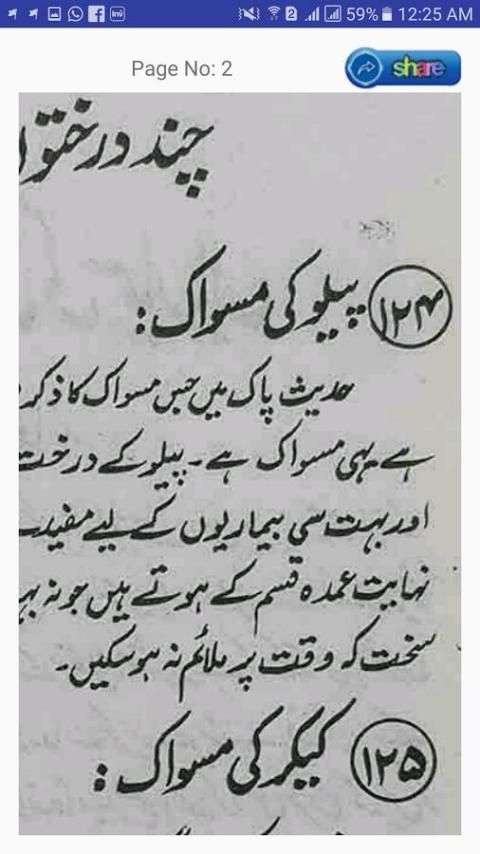 59% 12:25 AM
Page No: 2
share
چند درختوں
۱۲۴ پیلو کی مسواک :
حدیث پاک میں جس مسواک کا ذکر
ہے یہی مسواک ہے ۔ پیلو کے درخت
اور بہت سی بیماریوں کے لیے مفید
نہایت عمدہ قسم کے ہوتے ہیں جو نہ
سخت کہ وقت پر ملائم نہ ہو سکیں ۔
۱۲۵ کیکر کی مسواک :